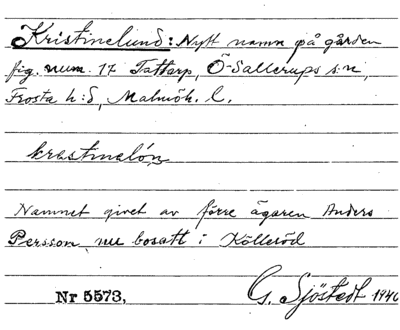 Kristinelund: Nytt namn på gården
fig. num. 17 Tattarp, Ö-Sallerups s:n,
Frosta h:d, Malmöh. l.
krestinelón
Namnet givet av förre ägaren Anders
Persson, nu bosatt i Kölleröd
Nr 5573, G. Sjöstedt 1940